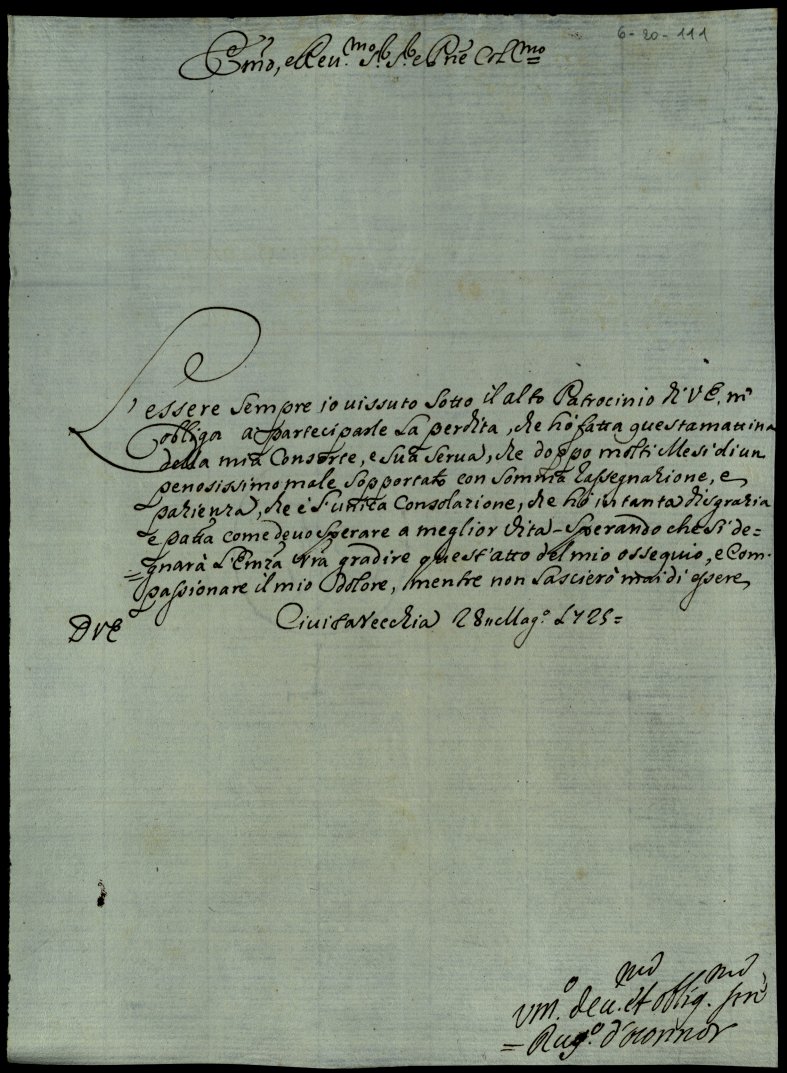 6-20-111
Em̃o, e Reu.mo Sr. Sr. e Prne Col.mo
L'essere Sempre io uissuto Sotto il alto Patrocinio di V E. m'
obliga a parteciparle La perdita, che hò fatta questa mattina
della mia Consorte, e Sua Serua, che doppo molti Mesi di un
penosissimo male Sopportato con Somma rassegnazione, e
pazienza, che è l'unica Consolazione, che hò in tanta disgrazia
è passa come deuo Sperare a meglior Vita - Sperando che Si de=
=gnarà L'Emza Vr̃a gradire quest'atto del mio ossequio, e Com-
passionare il mio dolore, mentre non Lascierò mai di essere
D V E
Ciuita Vecchia 28 Mag.o 1725=
Vm.o deu.mo et oblig.mo Seru
= Rug.o d'oconnor